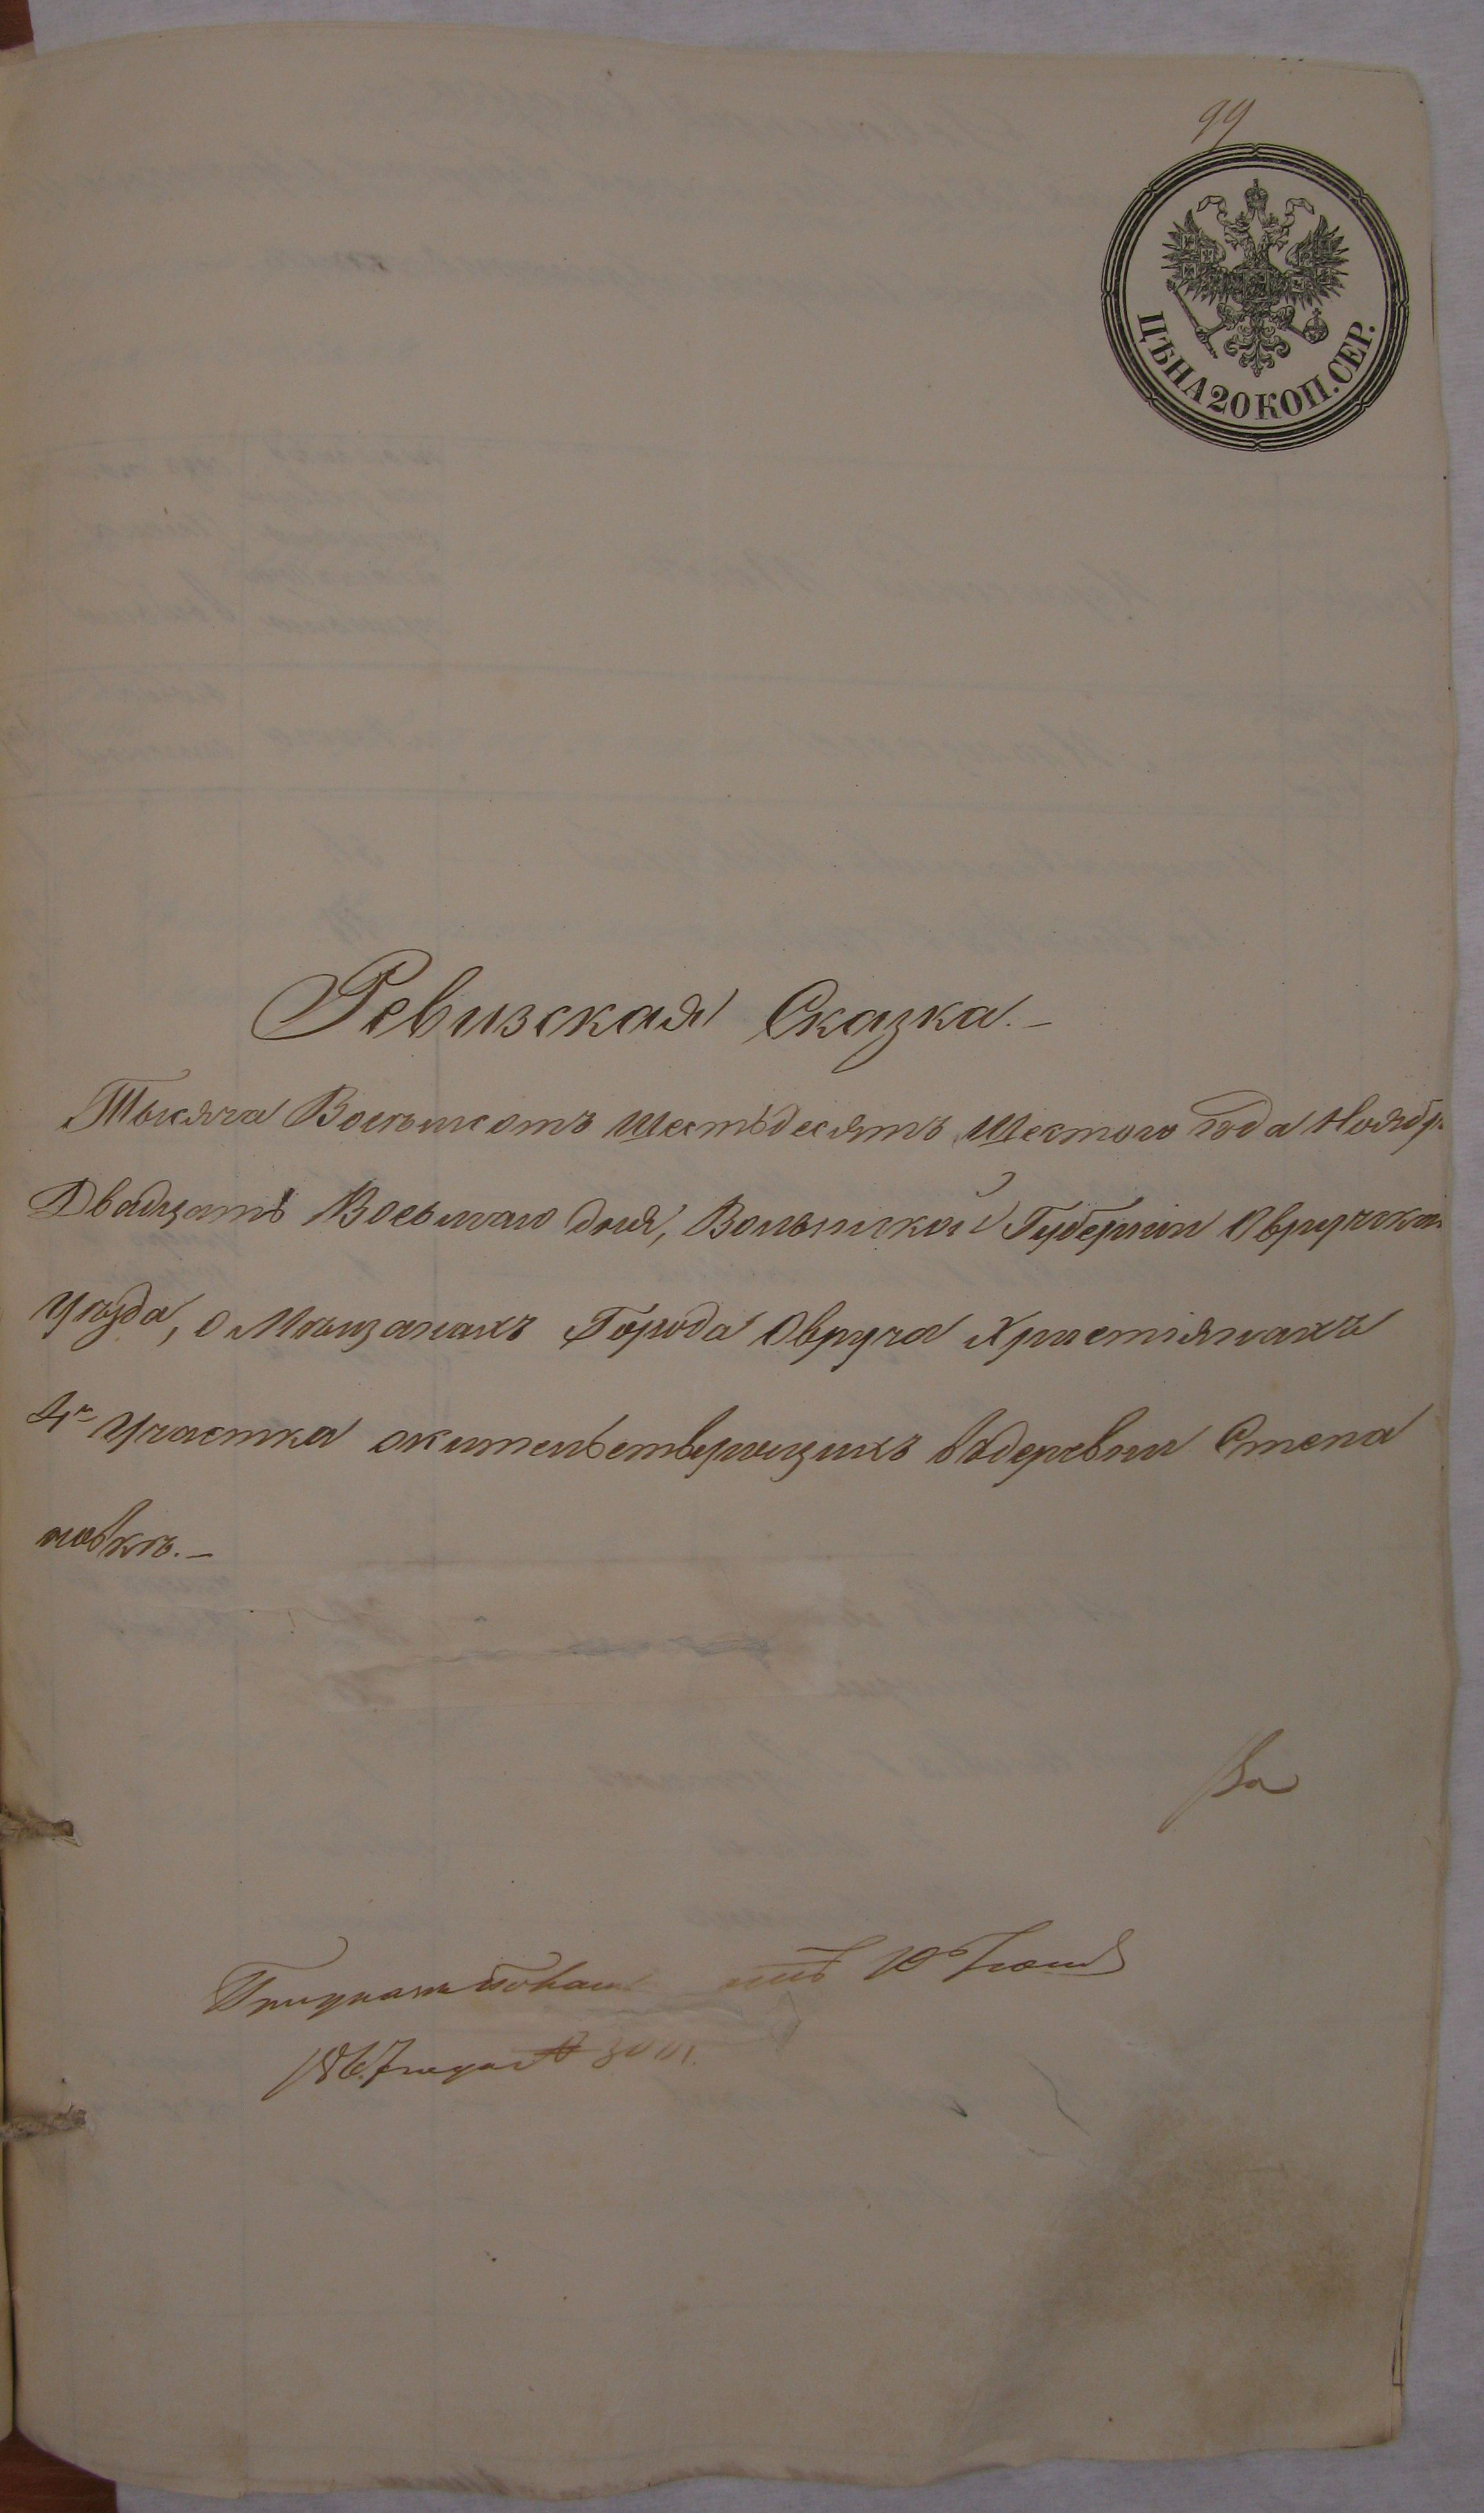 99
ЦѢНА 20 КОП. СЕР.
Ревизская Сказка.—
Тысяча Восемьсотъ Шестьдесятъ Шестого года Ноябр
Двадцать Восьмаго дня, Волынской Губерніи Овручска
Уѣзда, о Мѣщанахъ Города Овруча Христіянахъ
4го Участка жительствующихъ въ деревни Степа
новкѣ.—
1867 года